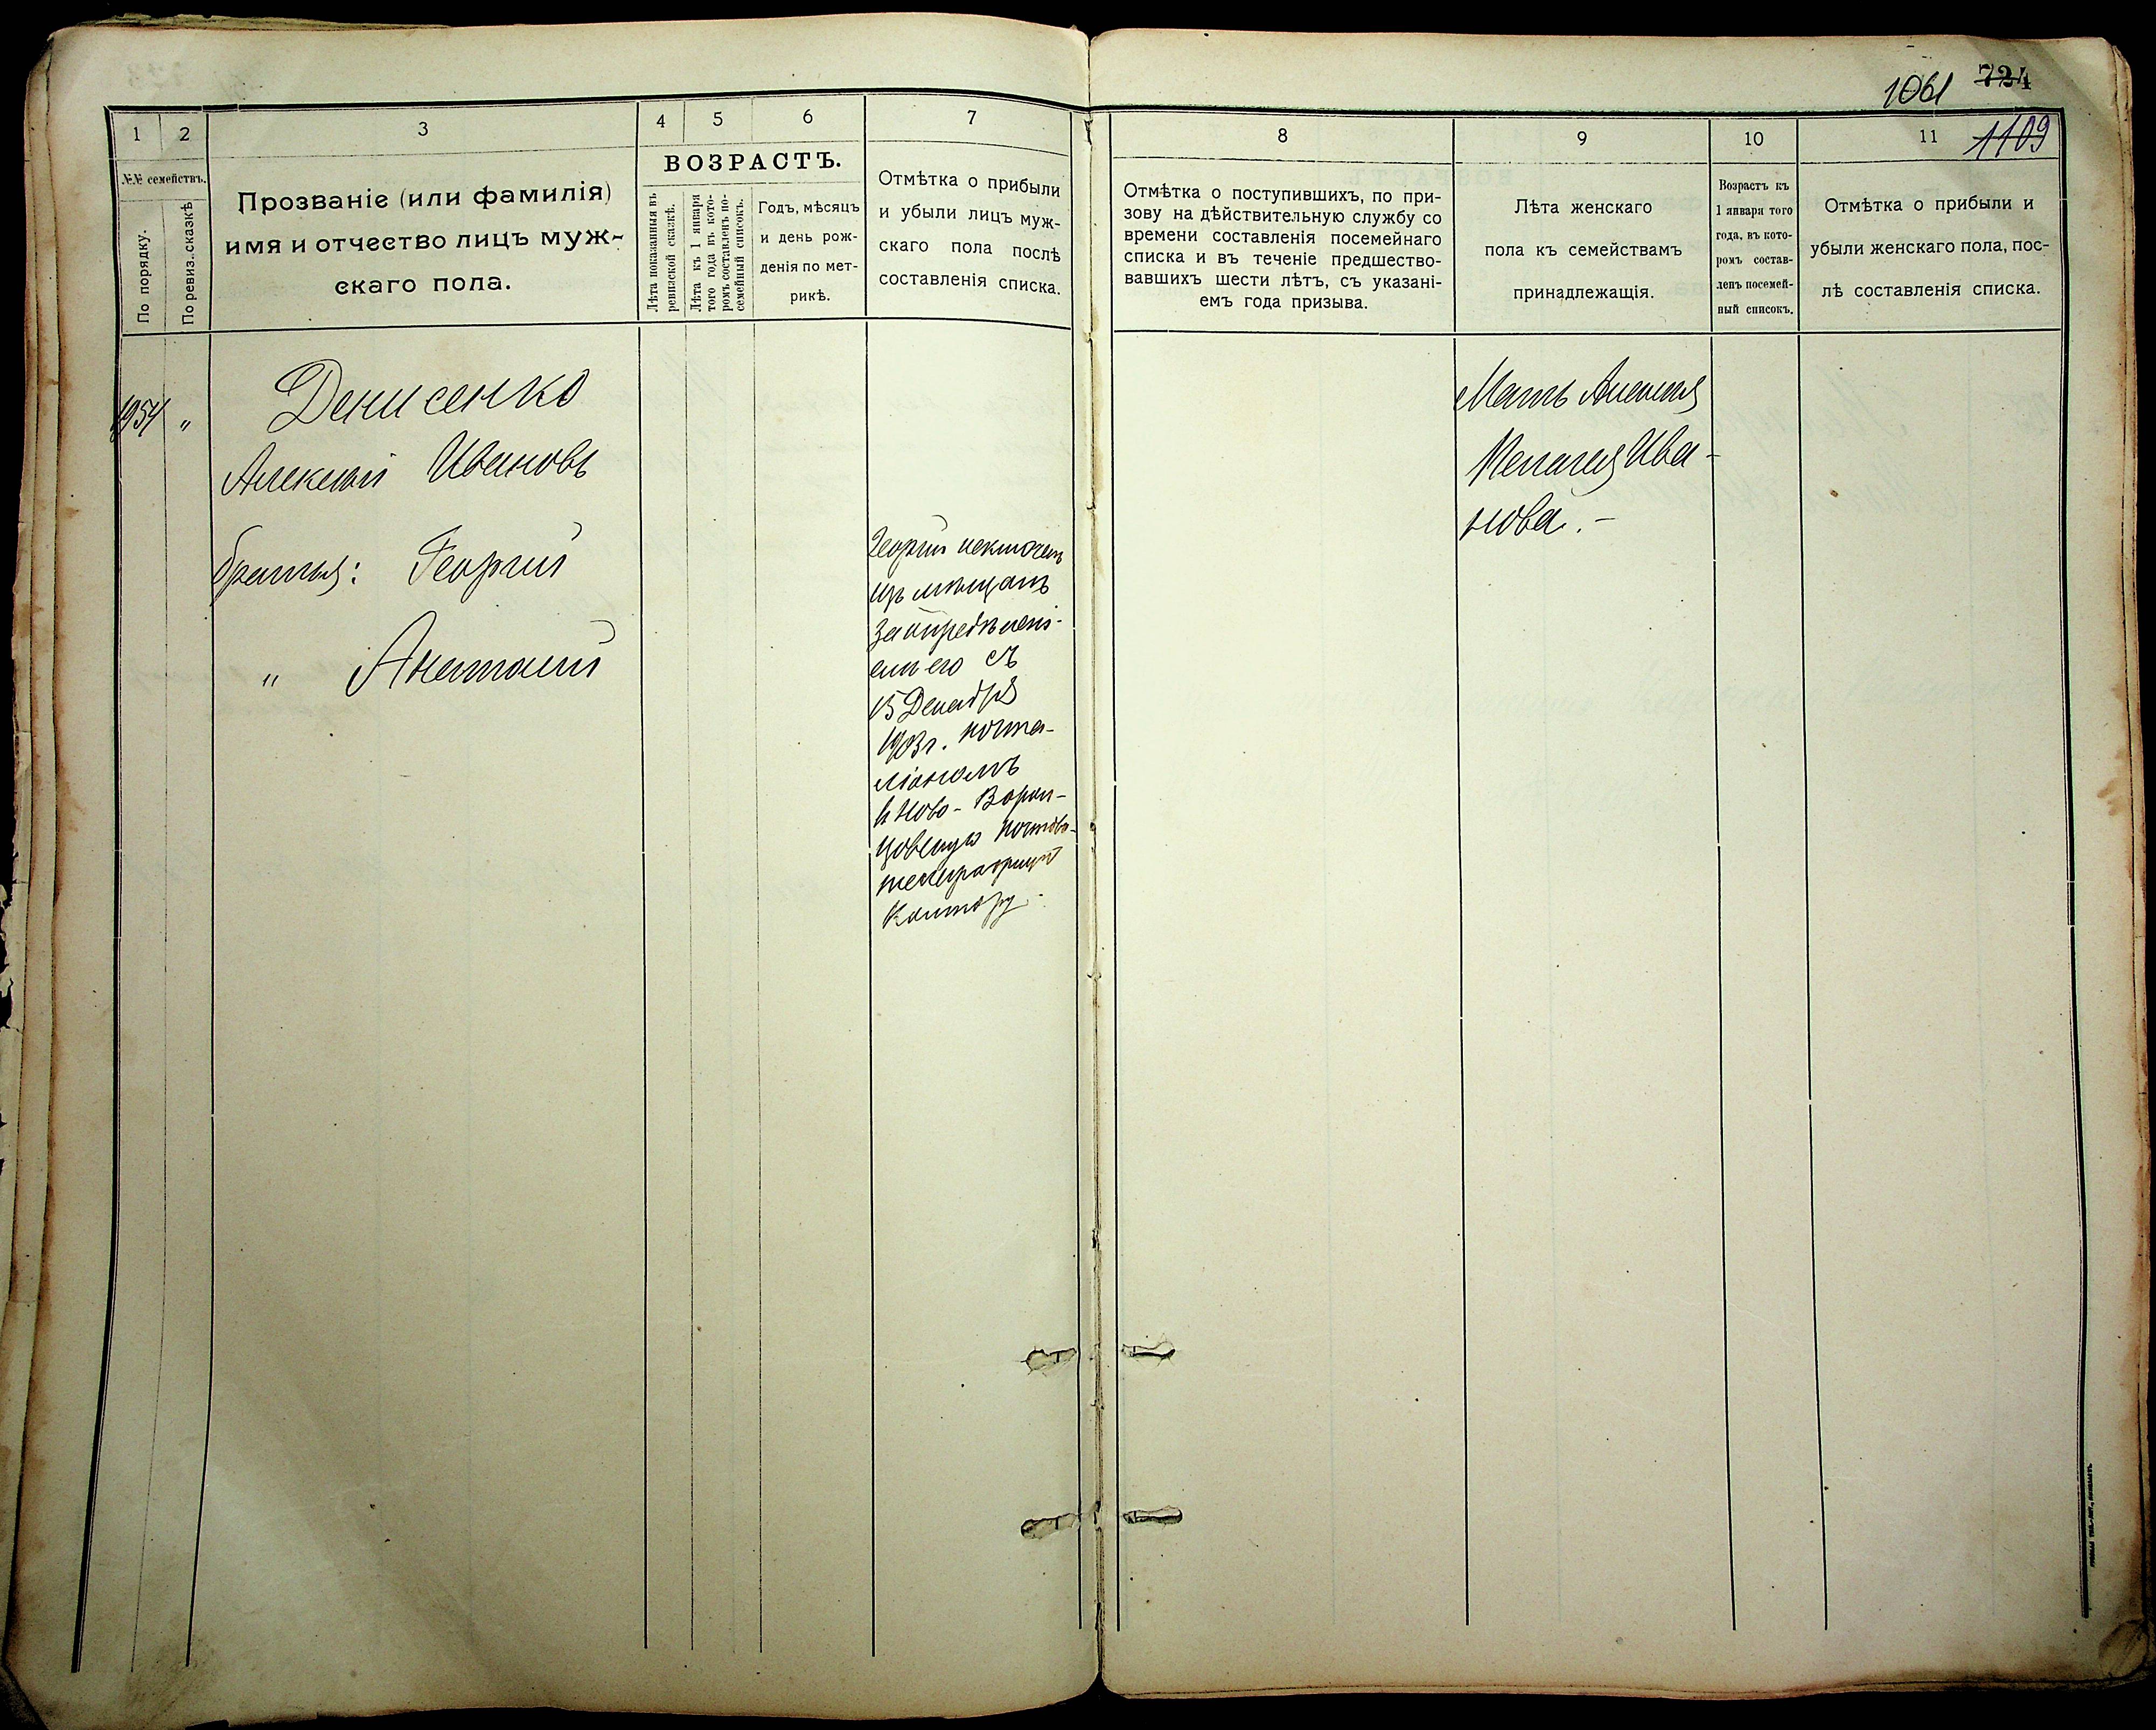 1061 724
1109
1
2
3
4
5
6
7
№№ семействъ.
По порядку.
По ревиз. сказкѣ
Прозваніе (или фамилія)
имя и отчество лицъ муж-
скаго пола.
ВОЗРАСТЪ.
Лѣта показанныя въ
ревизской сказкѣ.
Лѣта къ 1 января
того года въ кото-
ромъ составленъ по-
семейный списокъ.
Годъ, мѣсяцъ
и день рож-
денія по мет-
рикѣ.
Отмѣтка о прибыли
и убыли лицъ муж-
скаго пола послѣ
составленія списка.
1954 "
Денисенко
Алексѣй Ивановъ
братья: Георгій
" Анатолій
Георгій исключенъ
изъ мѣщанъ
за опредѣлені-
емъ его съ
15 Декабря
1903 г. почта-
ліономъ
в Ново-Ворон-
цовскую почтово-
телеграфную
Контору.
8
9
10
11
Отмѣтка о поступившихъ, по при-
зову на дѣйствительную службу со
времени составленія посемейнаго
списка и въ теченіе предшество-
вавшихъ шести лѣтъ, съ указані-
емъ года призыва.
Лѣта женскаго
пола къ семействамъ
принадлежащія.
Возрастъ къ
1 января того
года, въ кото-
ромъ состав-
ленъ посемей-
ный списокъ.
Отмѣтка о прибыли и
убыли женскаго пола, пос-
лѣ составленія списка.
Мать Алексѣя
Пелагея Ива-
нова.-